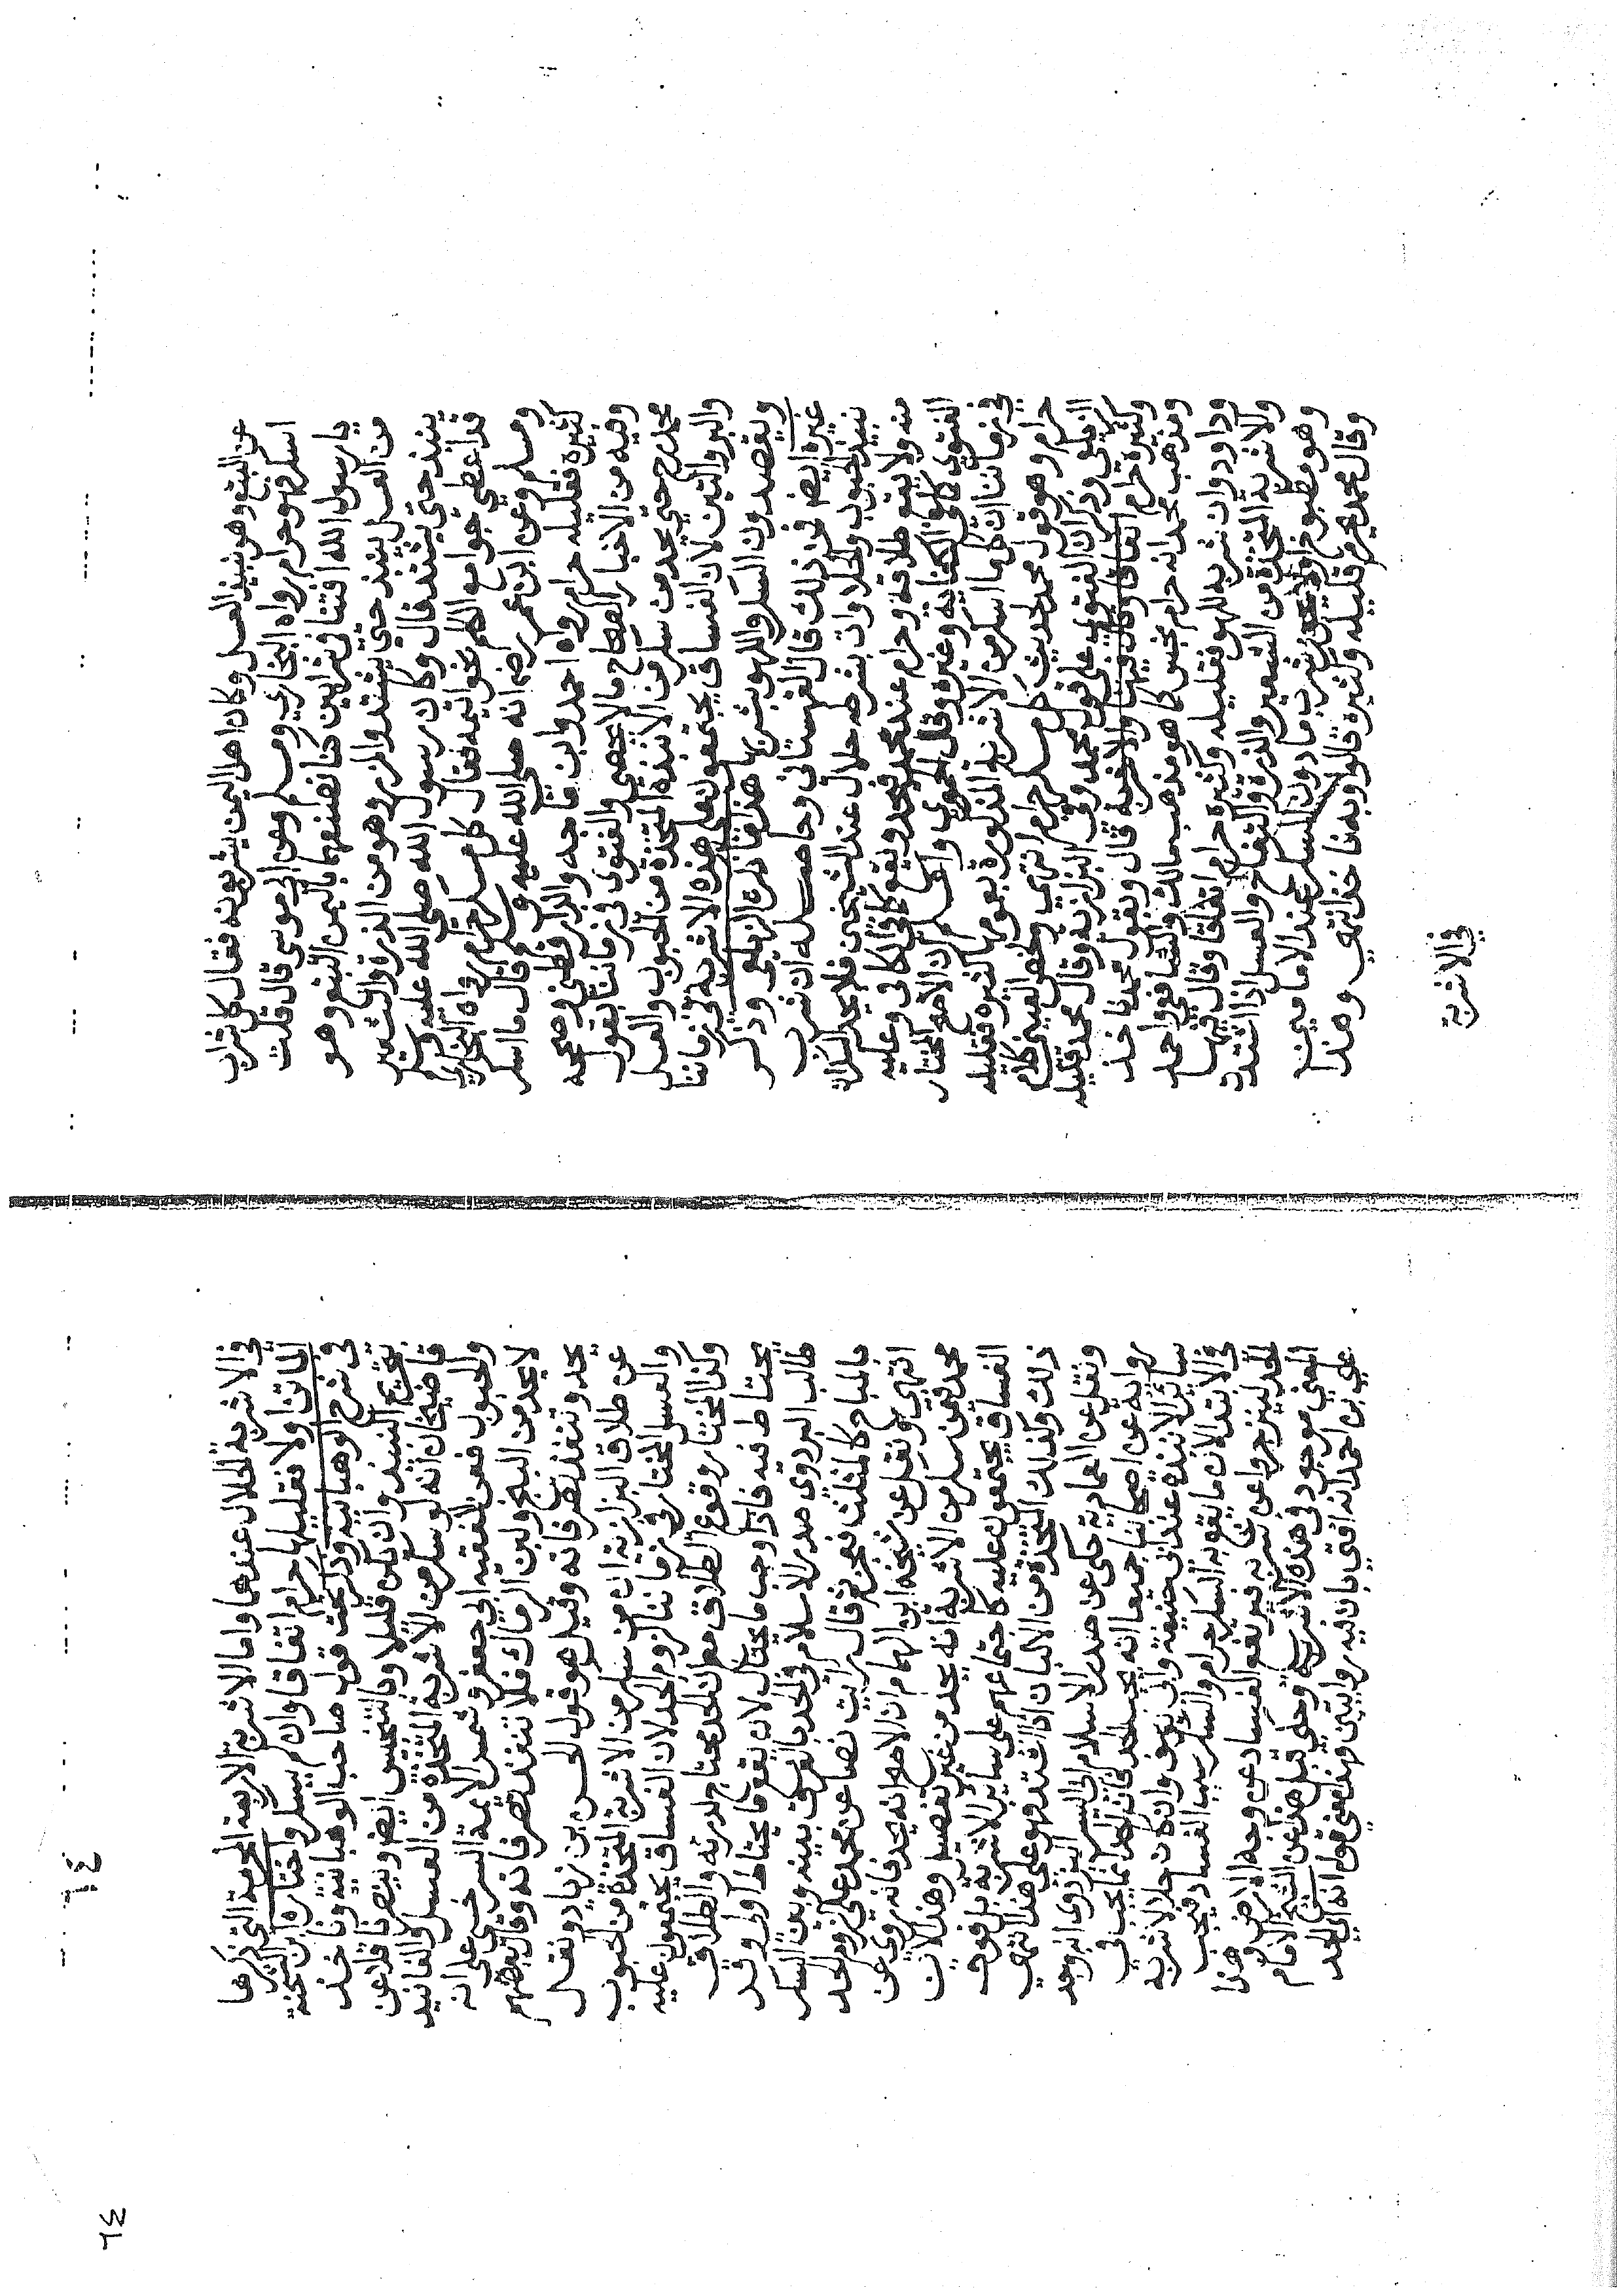 عن البتع وهو نبيذ العسل وكان اهل اليمن يشربونه فقال كل شراب
اسكر فهو حرام رواه البخاري ومسلم وعن ابي موسى قال قلت
يا رسول الله افتنا في شرابين كنا نصنعهما باليمن البتع وهو
من العسل ينبذ حتى يشتد والمزر وهو من الذرة والشعير
ينبذ حتى يشتد قال وكان رسول الله صلى الله عليه وسلم
قد اعطي جوامع الكلم بخواتيمه فقال كل مسكر حرام رواه البخاري
ومسلم وعن ابن عمر رضي انه صلى الله عليه وسلم قال ما اسكر
كثيره فقليله حرام رواه احمد وابن ماجه والدارقطني وصححه
وفيه من الاخبار الصحاح ما لا يحصى والفتوى في زماننا بقول
محمد رح حتى يحد من سكر من الانبذة المتخذة من الحبوب والعسل
والبر والتين لان الفساق يجتمعون على هذه الاشربة في زماننا
ويقصدون السكر واللهو بشربها هذا ما ذكره الزيلعي وذكر
غيره ايضا فمن ذلك قال القهستاني وحاصله ان شرب
نبيذ الحبوب والحلاوات بشرطه حلال عند الشيخين فلا يحد السكران
منه ولا يقع طلاقه وحرام عند محمد فيحد ويقع كما في الكافي وعليه
الفتوى كما في الكفاية وغيره وقال الحموي واعلم ان الاصح المختار
في زماننا ان كل ما اسكر من الاشربة المذكورة بعمومها كثيره فقليله
حرام وهو قول محمد لحديث كل مسكر حرام انتهى ولخص العيني كلام
الزيلعي وذكر ان الفتوى على قول محمد وفي البزازية وقال محمد قليله
وكثيره حرام قال وبقول محمد ناخذ
ومذهب محمد انه حرام نجس كما هو مذهب مالك والشافعي واحمد
وداود وان شربه للهو فقليله وكثيره حرام اتفاقا وقال فيها
والاشربة المتخذة من الشعير والذرة والتفاح والعسل اذا اشتدت
وهو مطبوخ او لا يحل شرب ما دون السكر عند الامامين
وقال محمد يحرم قليله وكثيره قالوا وبه ناخذ انتهى وهذا
في الاشربة
في الاشربة الحلال عندهما واما الاشربة الاربعة المحرمة التي ذكرها
الماتن اولا فقليلها حرام اتفاقا وان لم يسكر واختاره ابن الشحنة
في شرح الوهبانية وذكر تحت قول صاحب الوهبانية وناخذ
بتحريم النبيذ وان يكن قليلا وبالتنجيس ايضا وينصر ناقلا عن
قاضيخان انه لو سكر من الاشربة المتخذة من العسل والفانيد
والحبوب فعن الفقيه ابي جعفر وشمس الائمة السرخسي على انه
لا يحد من البنج ولبن الرماك فلا تنفذ تصرفاته وقال بعضهم
يحد وتنفذ تصرفاته وقيل هو قول الحسن بن زياد ونقل
عن طلاق البزازية ان من سكر من الاشربة المتخذة من الحبوب
والعسل المختار في زماننا لزوم الحد لان الفساق يجتمعون عليه
وكذا المختار وقوع الطلاق مع ان الحد يحتاج لدرئه والطلاق
يحتاط فيه فاذا وجب ما يحتال لان يقع ما يحتاط اولى وقد
طالب البزدوي صدر الاسلام في الحد بالفرق بينه وبين السكر
بالمباح كالمثلث فعجز ثم قال رايت نصا عن محمد على لزوم الحد
انتهى ونقل عن شيخه ابن الهمام ان الاصح انه يحد فانه روي عن
محمد فيمن سكر من الاشربة انه يحد من غير تفصيل وهذا لان
الفساق يجتمعون عليه كاجتماعهم على سائر الاشربة بل فوق
ذلك وكذلك المتخذة من الالبان اذا اشتد فهو على هذا انتهى
ونقل عن العمادية حكى عن صدر الاسلام ابي اليسر البزدوي انه وجد
رواية عن اصحابنا جميعا انه يجب الحد فان الحد انما يجب في
سائر الانبذة عند ابي حنيفة وابي يوسف وان كان حلالا شربه
في الابتداء لان ما يقع به السكر حرام والسكر سبب الفساد فيجب
الحد ليزجروا عن شربه فيرتفع الفساد عن وجه الارض وهذا
المعنى موجود في هذه الاشربة وحكى قبل هذا عن الشيخ الامام
علي بن احمد انه افتى بان فيه روايتين فهذا معنى قوله انه اي الحد
٦٤